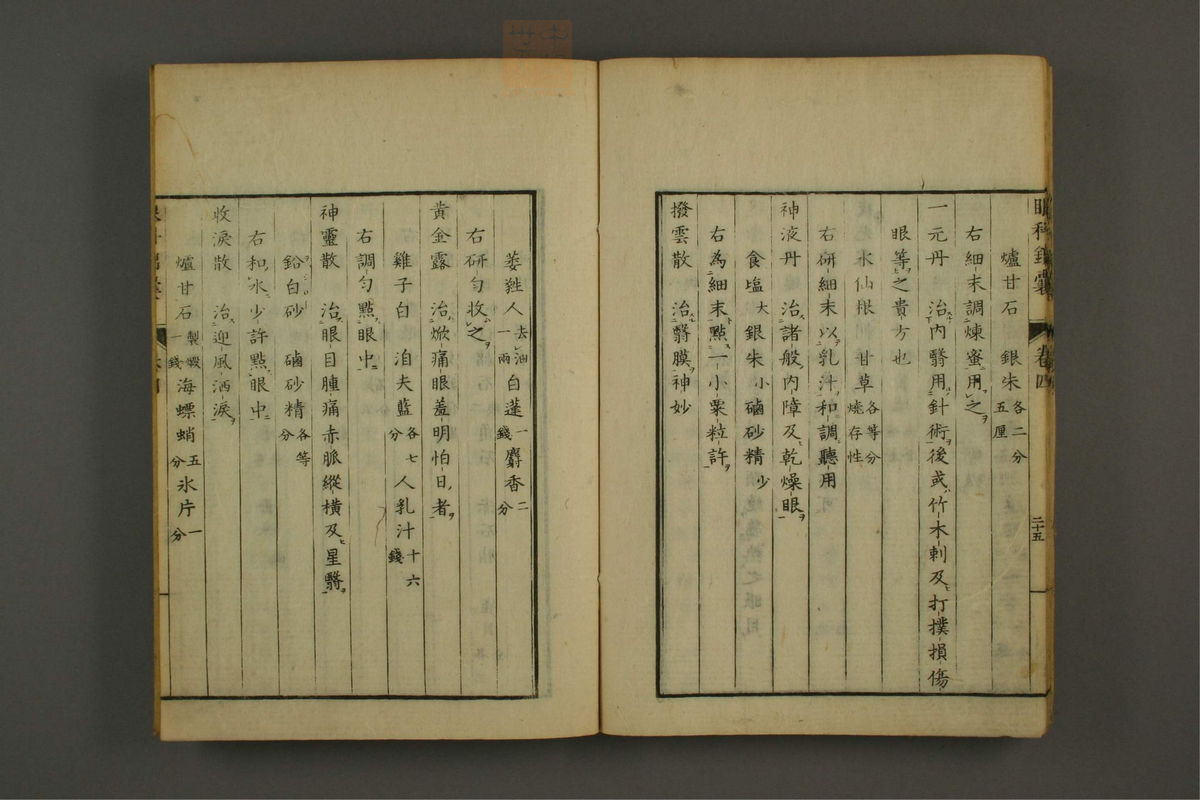 眼科錦囊 卷四 二十五
爐甘石 銀朱各二分五厘
右細末調煉蜜用之
一元丹 治内翳用針術後或竹木刺及打撲損傷
眼等之貴方也
水仙根 甘草各等分燒存性
右研細末以乳汁和調聽用
神液丹 治諸般内障及乾燥眼
食塩大 銀朱小 硇砂精少
右為細末點一小粟粒許
撥雲散 治翳膜神妙
蕤人去油一兩 白蓬一錢 麝香二分
右研勻收之
黄金露 治焮痛眼羞明怕日者
雞子白 泊夫藍各七分 人乳汁十六錢
右調勻點眼中
神靈散 治眼目腫痛赤脈縱横及星翳
鉛白砂 硇砂精各等分
右和水少許點眼中
收淚散 治迎風洒淚
爐甘石製煆一錢 海螵蛸五分 氷片一分